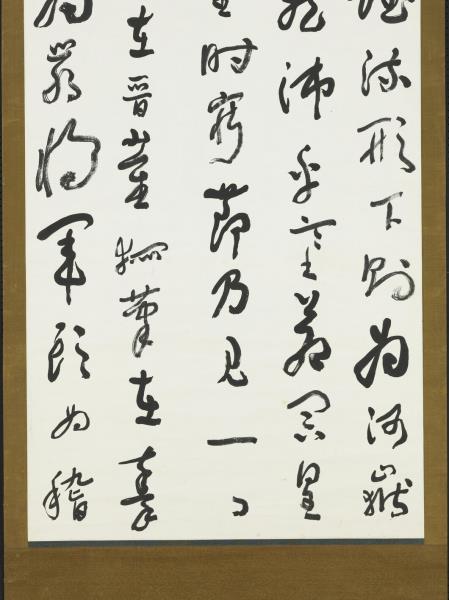 流形下則為河嶽
然沛乎塞蒼冥皇
時窮節乃見一々
在晉董狐筆在秦
為嚴將軍頭為稽